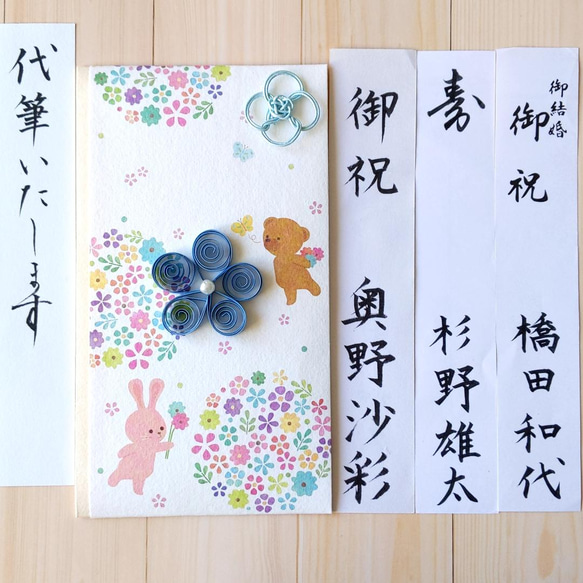 代筆いたします
御祝
奥野沙彩
寿
杉野雄太
御結婚
御祝
橋田和代